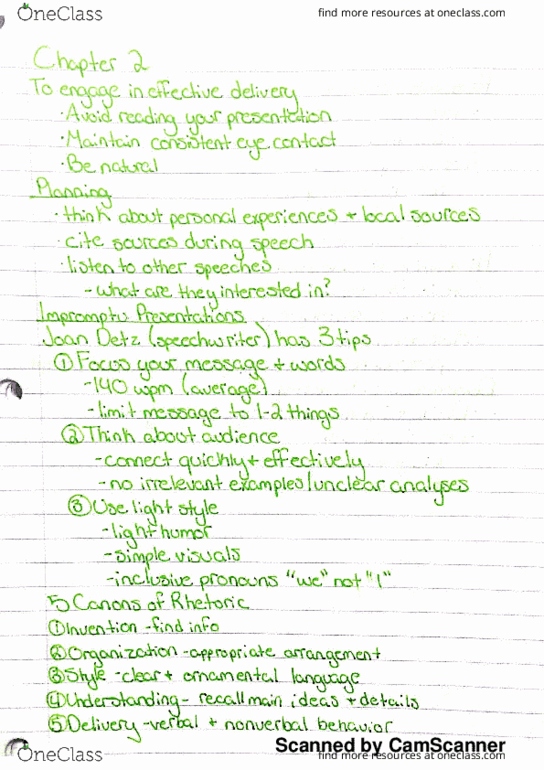 OneClass
find more resources at oneclass.com
Chapter 2
To engage in effective delivery
· Avoid reading your presentation
· Maintain consistent eye contact
· Be natural
Planning
· think about personal experiences + local sources
· cite sources during speech
· listen to other speeches
- what are they interested in?
Impromptu Presentations
Joan Detz (speechwriter) has 3 tips
① Focus your message + words
- 140 wpm (average)
- limit message to 1-2 things
② Think about audience
- connect quickly + effectively
- no irrelevant examples/unclear analyses
③ Use light style
- light humor
- simple visuals
- inclusive pronouns "we" not "I"
5 Canons of Rhetoric
① Invention - find info
② Organization - appropriate arrangement
③ Style - clear + ornamental language
④ Understanding - recall main ideas + details
⑤ Delivery - verbal + nonverbal behavior
Scanned by CamScanner
OneClass
find more resources at oneclass.com